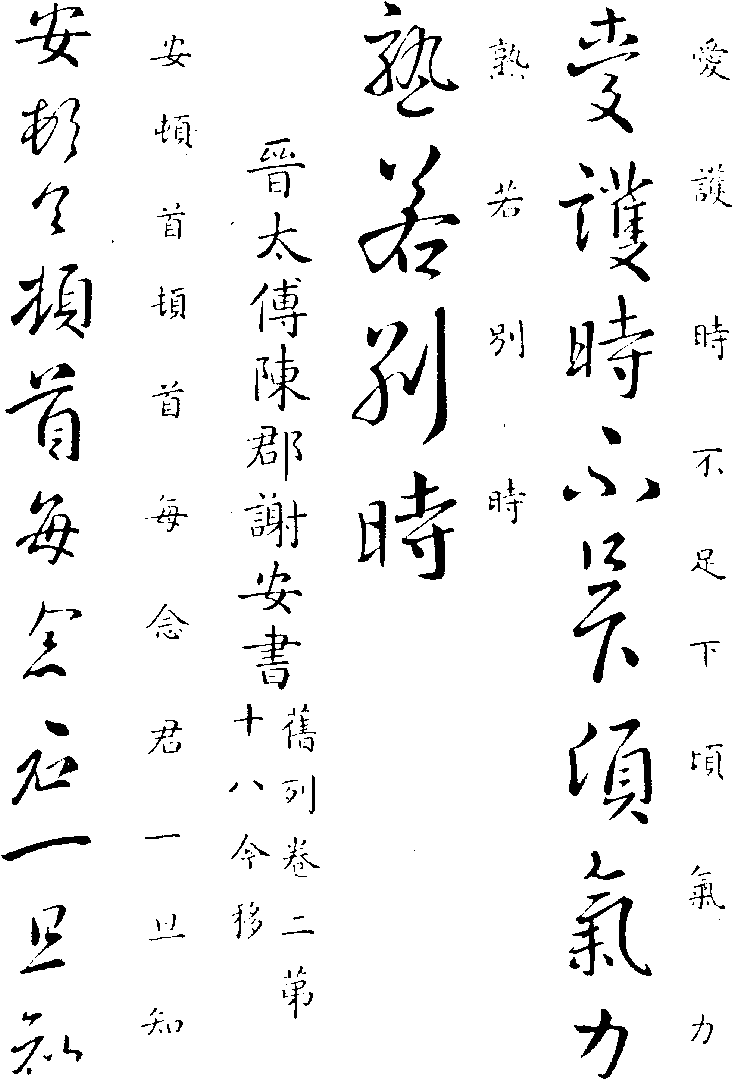 愛護時不足下頃氣力
愛護時不足下頃氣力
熟若別時
熟若別時
晉太傅陳郡謝安書
舊列卷二第
十八今移
安頓首頓首每念君一旦知
安頓首頓首每念君一旦知